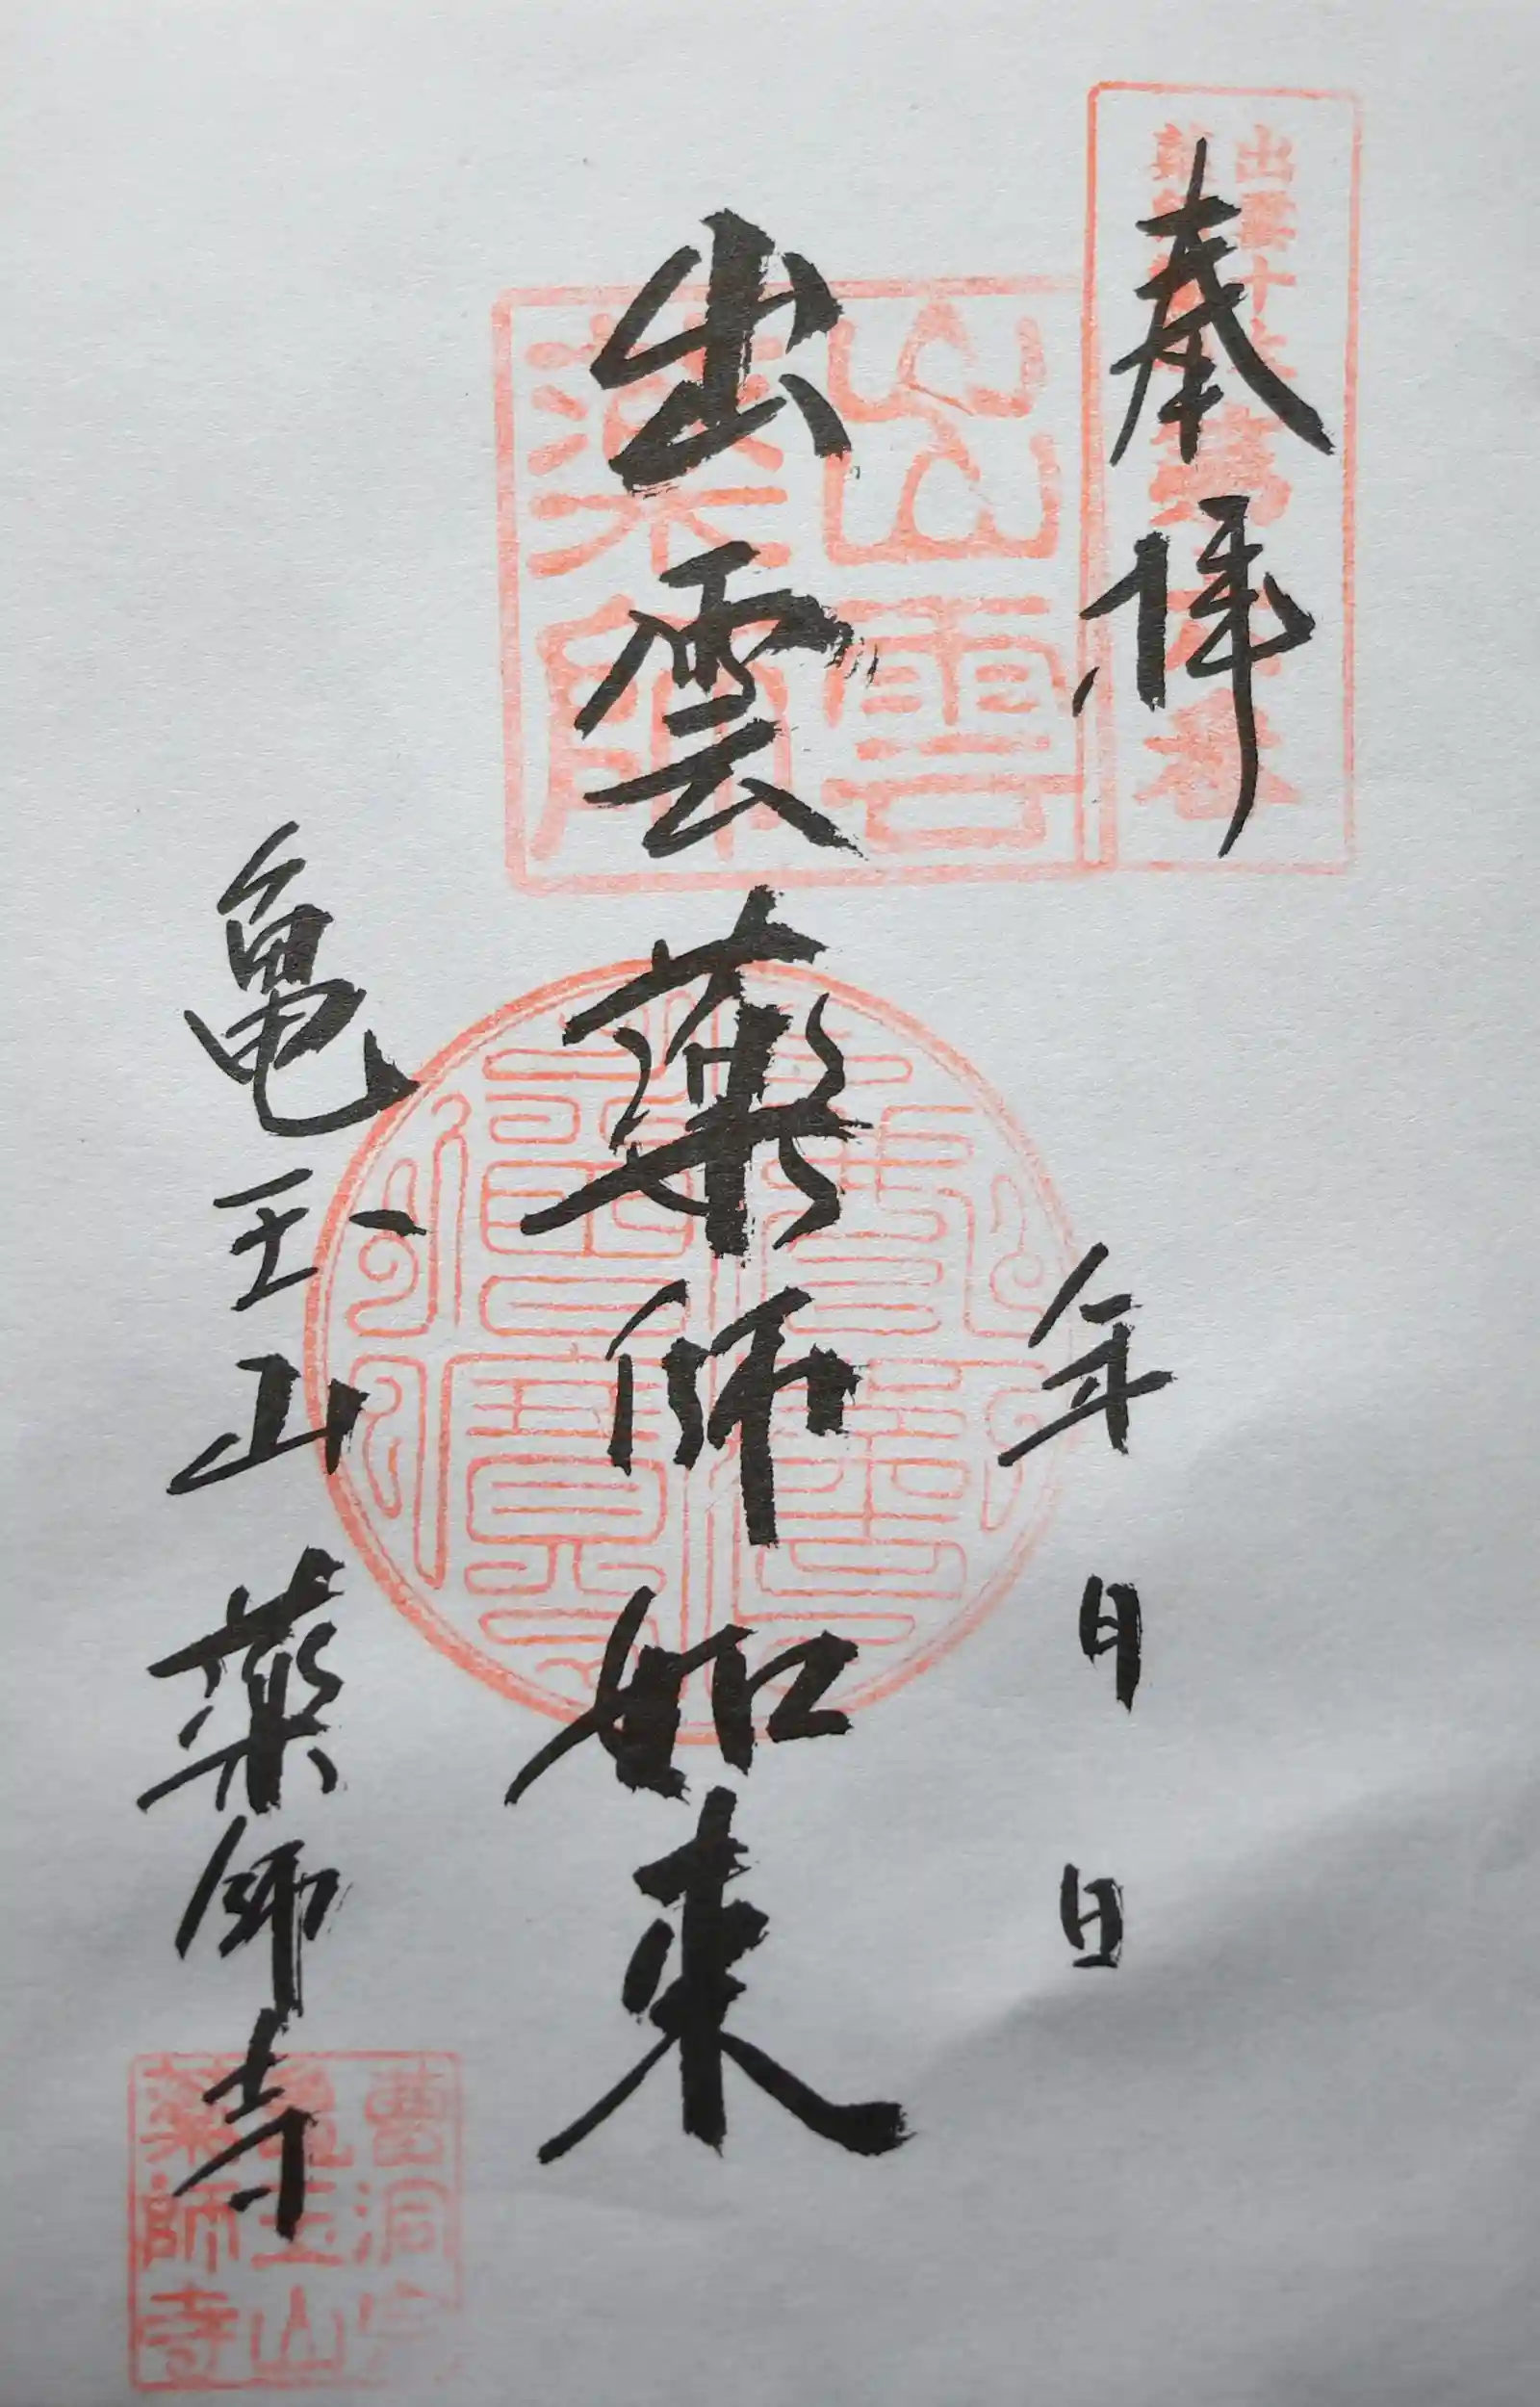 奉拝
年 月 日
出雲薬師如来
亀王山 薬師寺
出雲
薬師
曹洞宗
亀王山
薬師寺